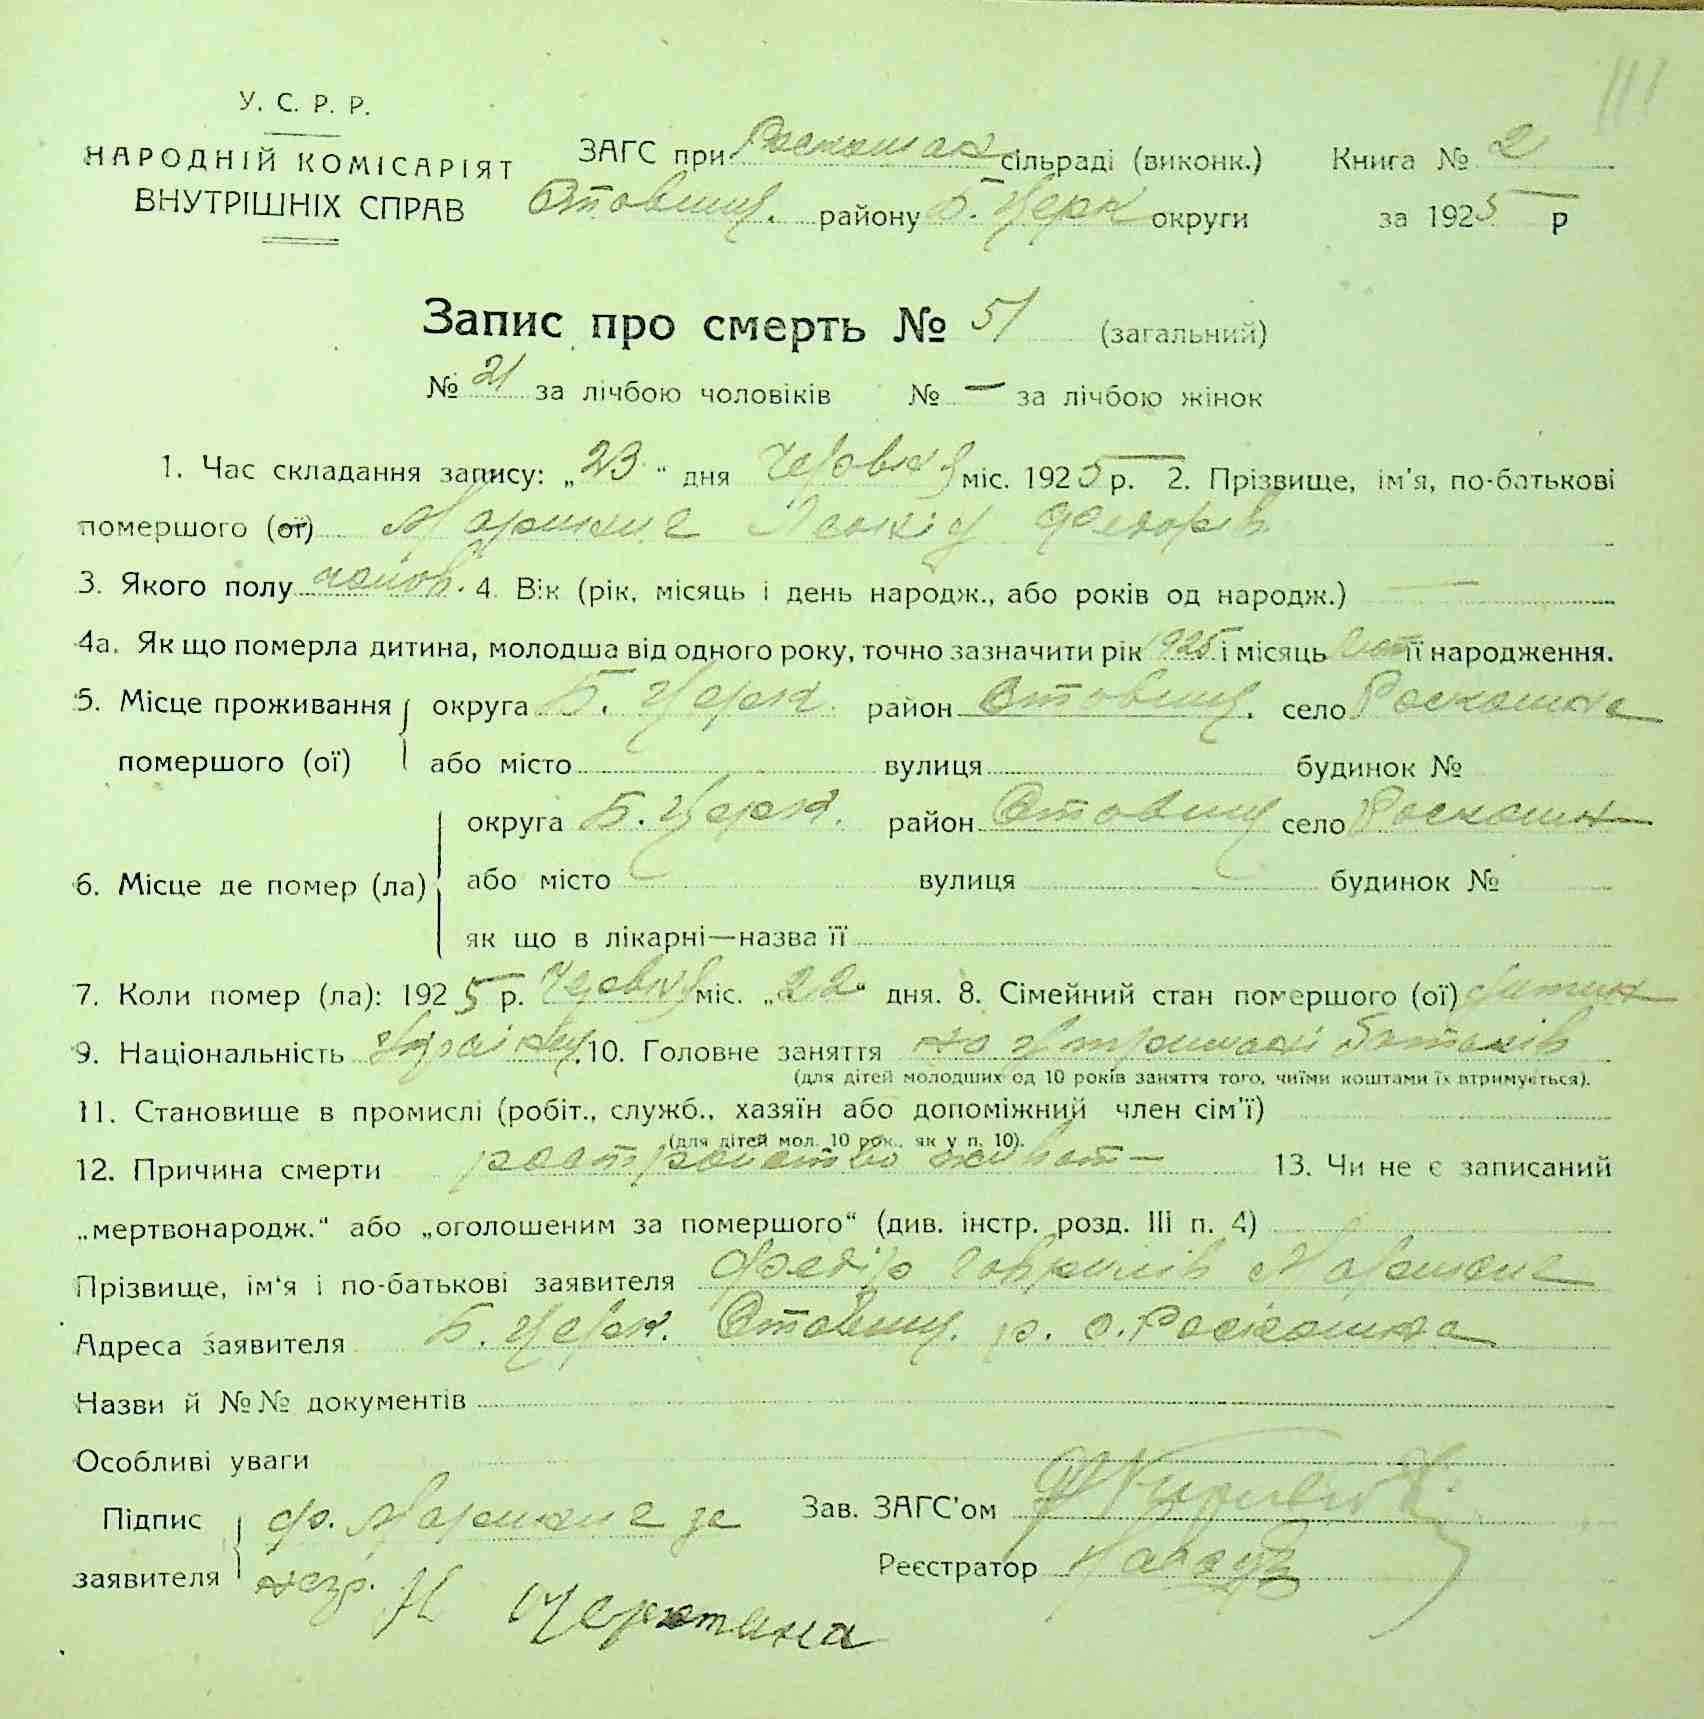 111
У. С. Р. Р.
НАРОДНІЙ КОМІСАРІЯТ
ВНУТРІШНІХ СПРАВ
ЗАГС при Роскошах сільраді (виконк.) Книга № 2
Ставищ. району Б. Церк округи за 1925 р
Запис про смерть № 51 (загальний)
№ 21 за лічбою чоловіків № — за лічбою жінок
1. Час складання запису: „23" дня Червня міс. 1925 р. 2. Прізвище, ім'я, по-батькові
помершого (ої) Федорів
3. Якого полу чолов. 4. Вік (рік, місяць і день народж., або років од народж.) —
4а. Як що померла дитина, молодша від одного року, точно зазначити рік 1925 і місяць її народження.
5. Місце проживання округа Б. Церк. район Ставищ. село Роскошна
помершого (ої) або місто вулиця будинок №
округа Б. Церк. район Ставищ село Роскошн
6. Місце де помер (ла) або місто вулиця будинок №
як що в лікарні—назва її
7. Коли помер (ла): 1925 р. Червня міс. „22" дня. 8. Сімейний стан помершого (ої) дитин
9. Національність Україн. 10. Головне заняття на утриманні батьків
(для дітей молодших од 10 років заняття того, чиїми коштами їх втримується).
11. Становище в промислі (робіт., служб., хазяїн або допоміжний член сім'ї)
(для дітей мол. 10 рок., як у п. 10).
12. Причина смерти растройство живот— 13. Чи не є записаний
„мертвонародж." або „оголошеним за помершого" (див. інстр. розд. III п. 4)
Прізвище, ім'я і по-батькові заявителя Федір Гаврилів
Адреса заявителя Б. Церк. Ставищ. р. с. Роскошна
Назви й №№ документів
Особливі уваги
Підпис ф. за Зав. ЗАГС'ом
заявителя незр. Н Реєстратор